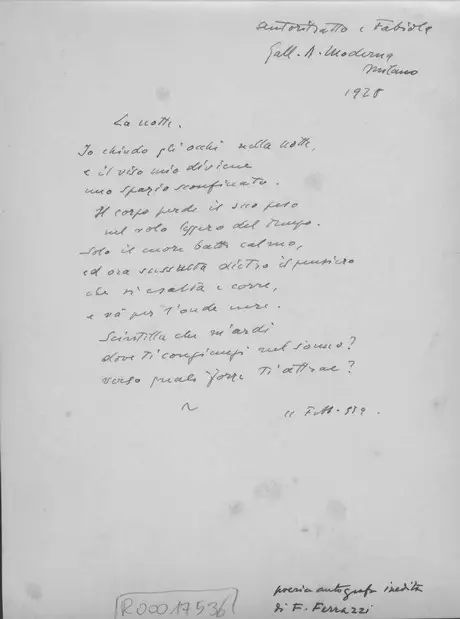 Autoritratto e Fabiola
Gall. A. Moderna
Milano
1928
La notte.
Io chiudo gli occhi nella notte,
e il viso mio diviene
uno spazio sconfinato.
Il corpo perde il suo peso
nel volo leggero del tempo.
Solo il cuore batte calmo,
ed ora sussulta dietro il pensiero
che si esalta e corre,
e va per l'onde nere.
Scintilla che m'ardi
dove ti congiungi nel sonno?
verso quale forza ti attrae?
~
11 Febb. 939.
poesia autografa inedita
di F. Ferrazzi
R00017536